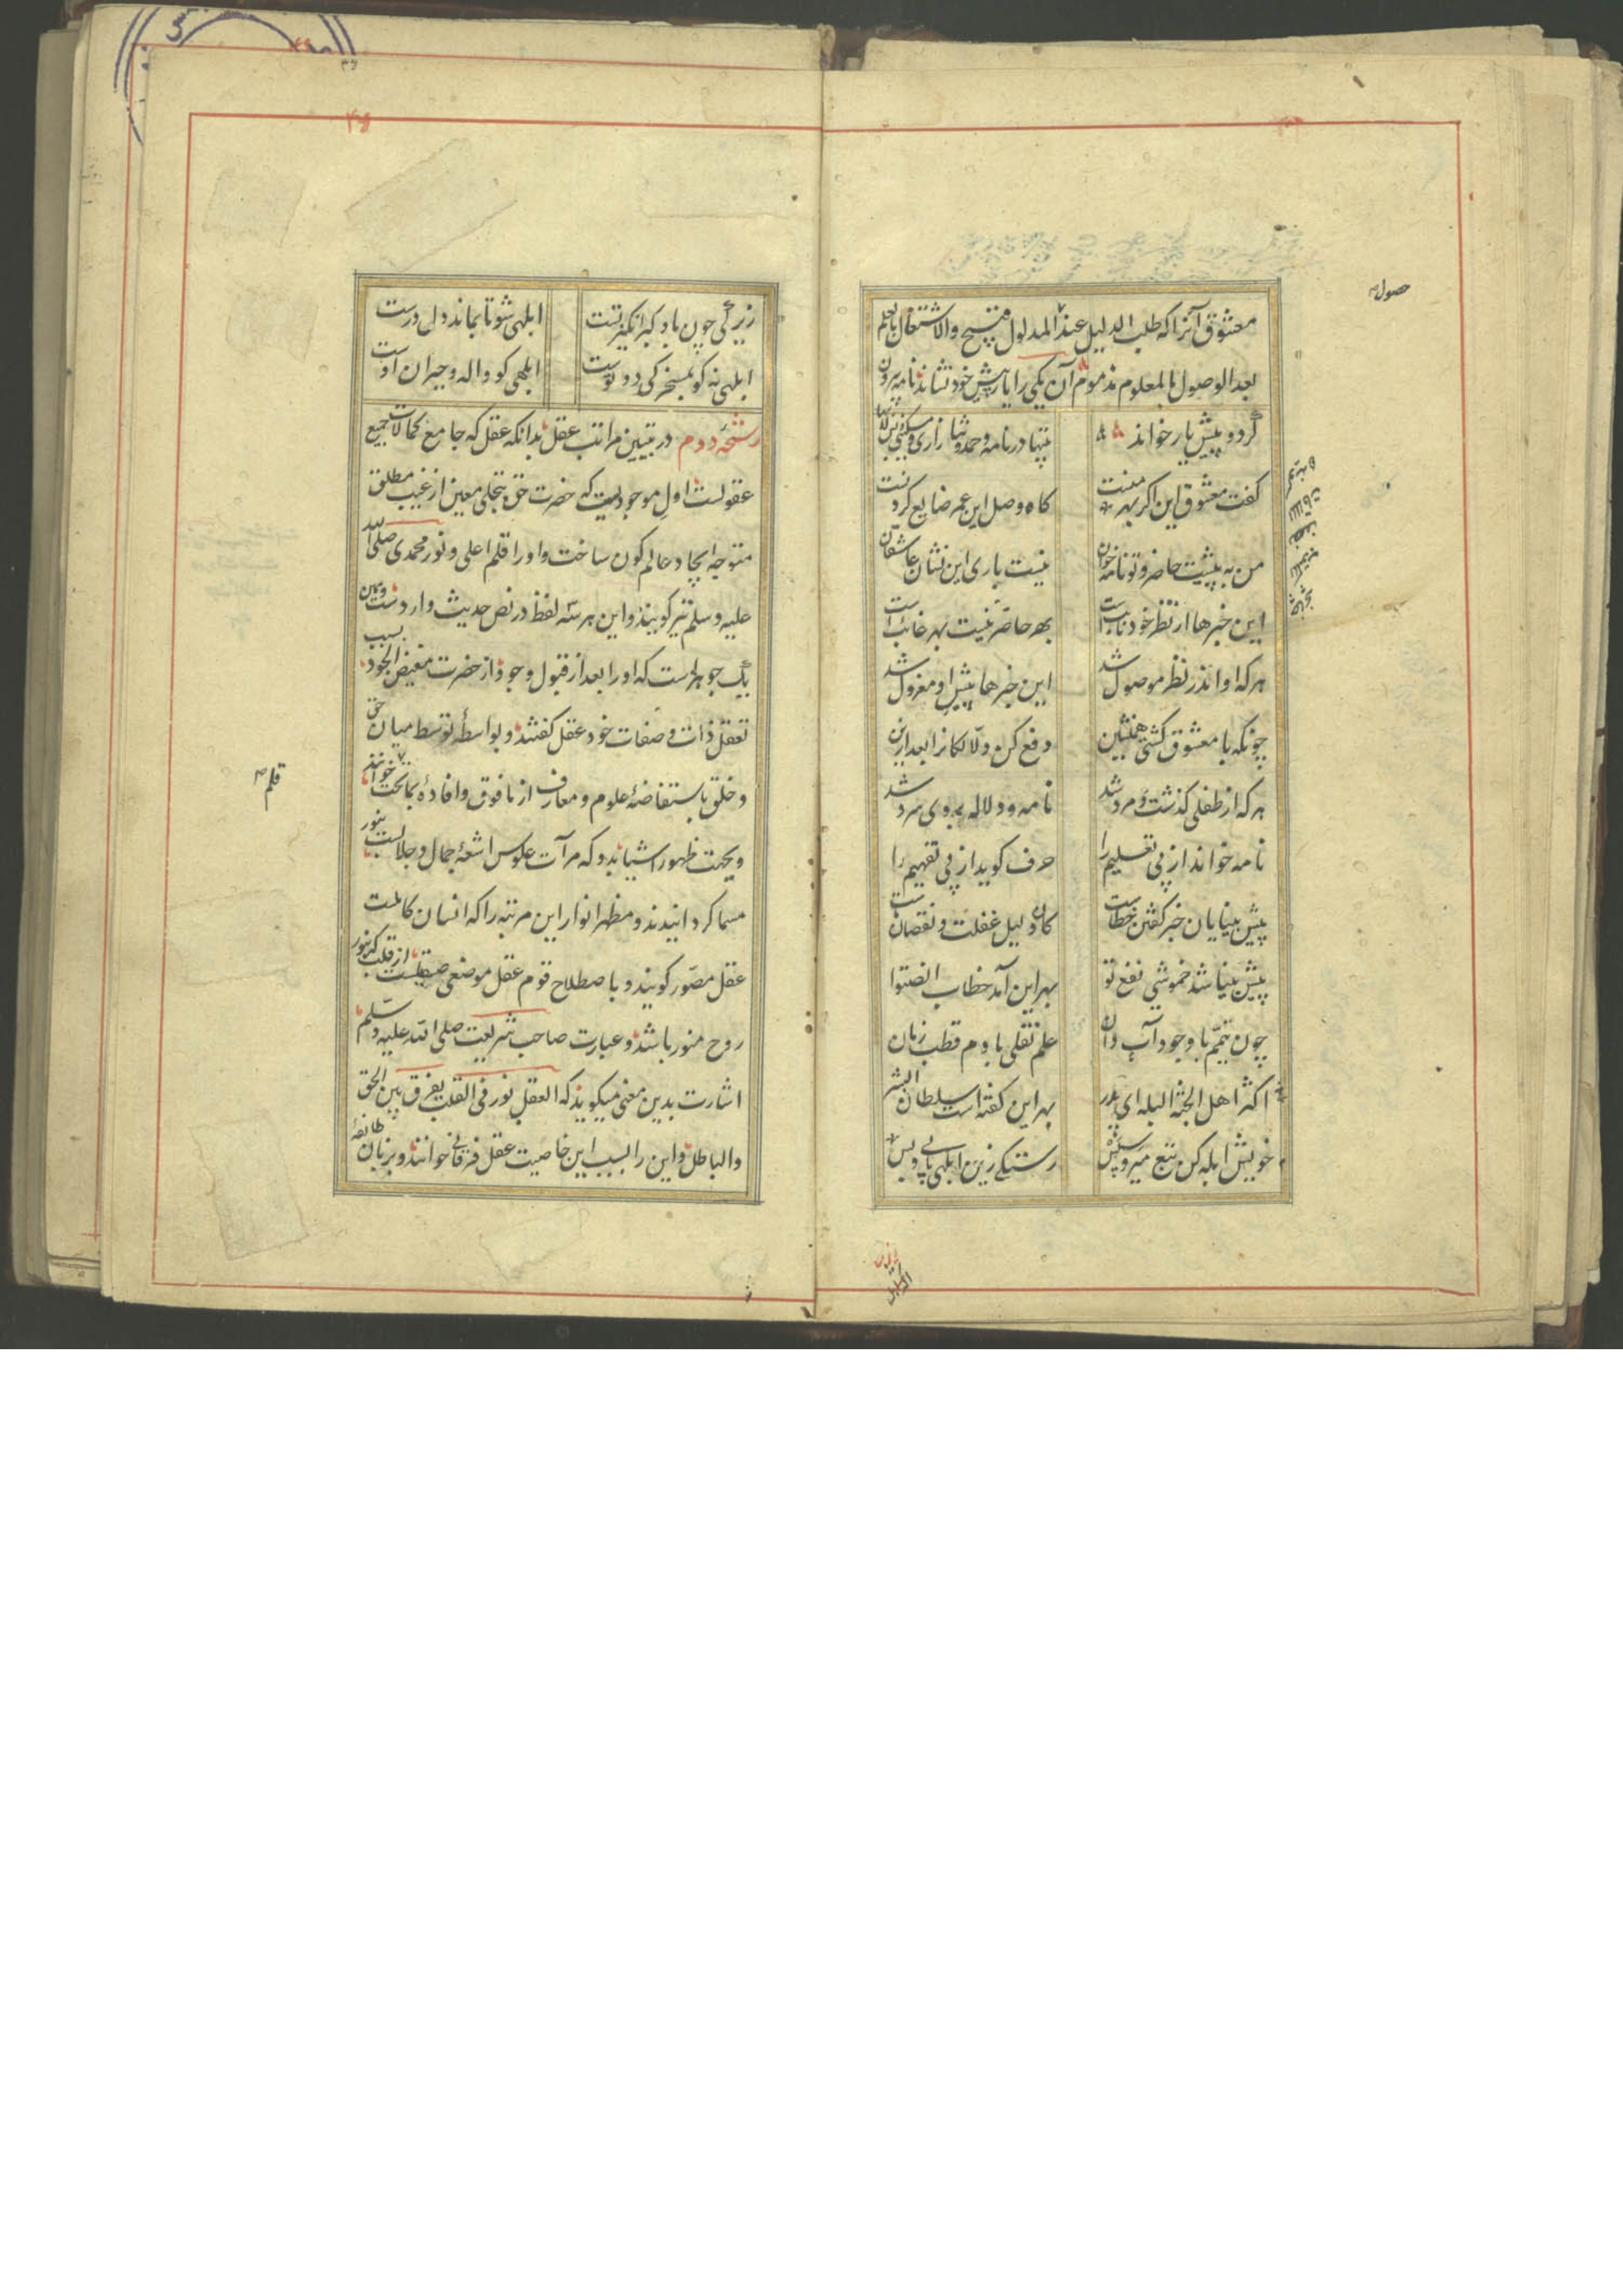 معشوق آنرا که طلب الدلیل عند المدلول قبیح والاشتغال بالعلم
بعد الوصول بالمعلوم مذموم آن یکی را یار پیش خود نشاند نامه بیرون
کرد و پیش یار خواند
بیتها در نامه و مدح و ثنا زاری و مسکینی
گفت معشوق این اگر بهر منست
گاه وصل این عمر ضایع کردنست
من به پیشت حاضر و تو نامه خوان
نیست باری این نشان عاشقان
این خبرها از نظر خود نایبست
بهر حاضر نیست بهر غائبست
هر که او اندر نظر موصول شد
این خبرها پیش او معزول شد
چونکه با معشوق گشتی همنشین
دفع کن دلالگانرا بعد ازین
هر که از طفلی گذشت و مرد شد
نامه و دلاله بروی سرد شد
نامه خواند از پی تعلیم را
حرف گوید از پی تفهیم را
پیش بینایان خبر گفتن خطاست
کان دلیل غفلت و نقصان ماست
پیش بینا شد خموشی نفع تو
بهر این آمد خطاب انصتوا
چون تیمم با وجود آب دان
علم نقلی با دم قطب زمان
اکثر اهل الجنة البله ای پدر
بهر این گفته است سلطان البشر
خویش ابله کن تبع میرو سپس
رستگی زین ابلهی یابی و بس
حصول
زیرکی چون باد کبرانگیز تست
ابلهی شو تا بماند دل درست
ابلهی نه کو بمسخرگی دو توست
ابلهی کو واله و حیران اوست
رشحهٔ دوم در تبیین مراتب عقل بدانکه عقل که جامع کمالات جمیع
عقولست اول موجودیست که حضرت حق بتجلی معین از غیب مطلق
متوجه ایجاد عالم کون ساخت و او را قلم اعلی و نور محمدی صلی الله
علیه وسلم نیز گویند و این هر سه لفظ در نص حدیث وارد شست و آن
یک جوهرست که او را بعد از قبول وجود از حضرت مفیض الجود بسبب
تعقل ذات و صفات خود عقل گفتند و بواسطهٔ توسط میان حق
و خلق باستفاضهٔ علوم و معارف از مافوق و افاده بماتحت خوانند
قلم
وبجهت ظهور اشیا بدو که مرآت عکوس اشعهٔ جمال و جلالست بنور
مسما گردانیدند و مظهر انوار این مرتبه را که انسان کاملست
عقل مصور گویند و باصطلاح قوم عقل موضعی صیقلیست از قلب که بنور
روح منور باشد و عبارت صاحب شریعت صلی الله علیه وسلم
اشارت بدین معنی میگوید که العقل نور فی القلب یفرق بین الحق
والباطل و این را بسبب این خاصیت عقل فرقانی خوانند و بزبان طائفهٔ